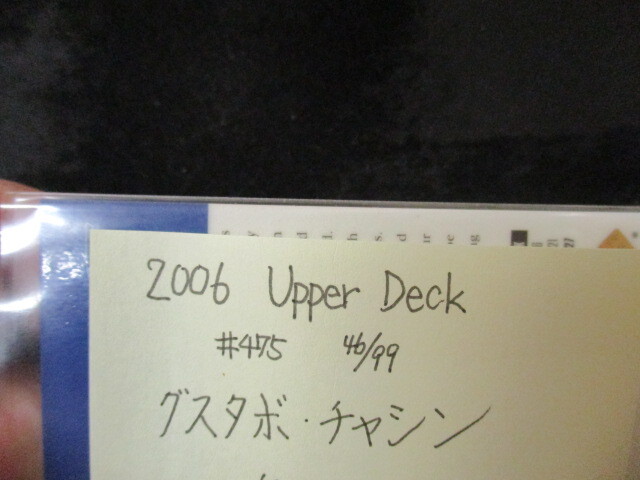 2006 Upper Deck
#475 46/99
グスタボ・チャシン